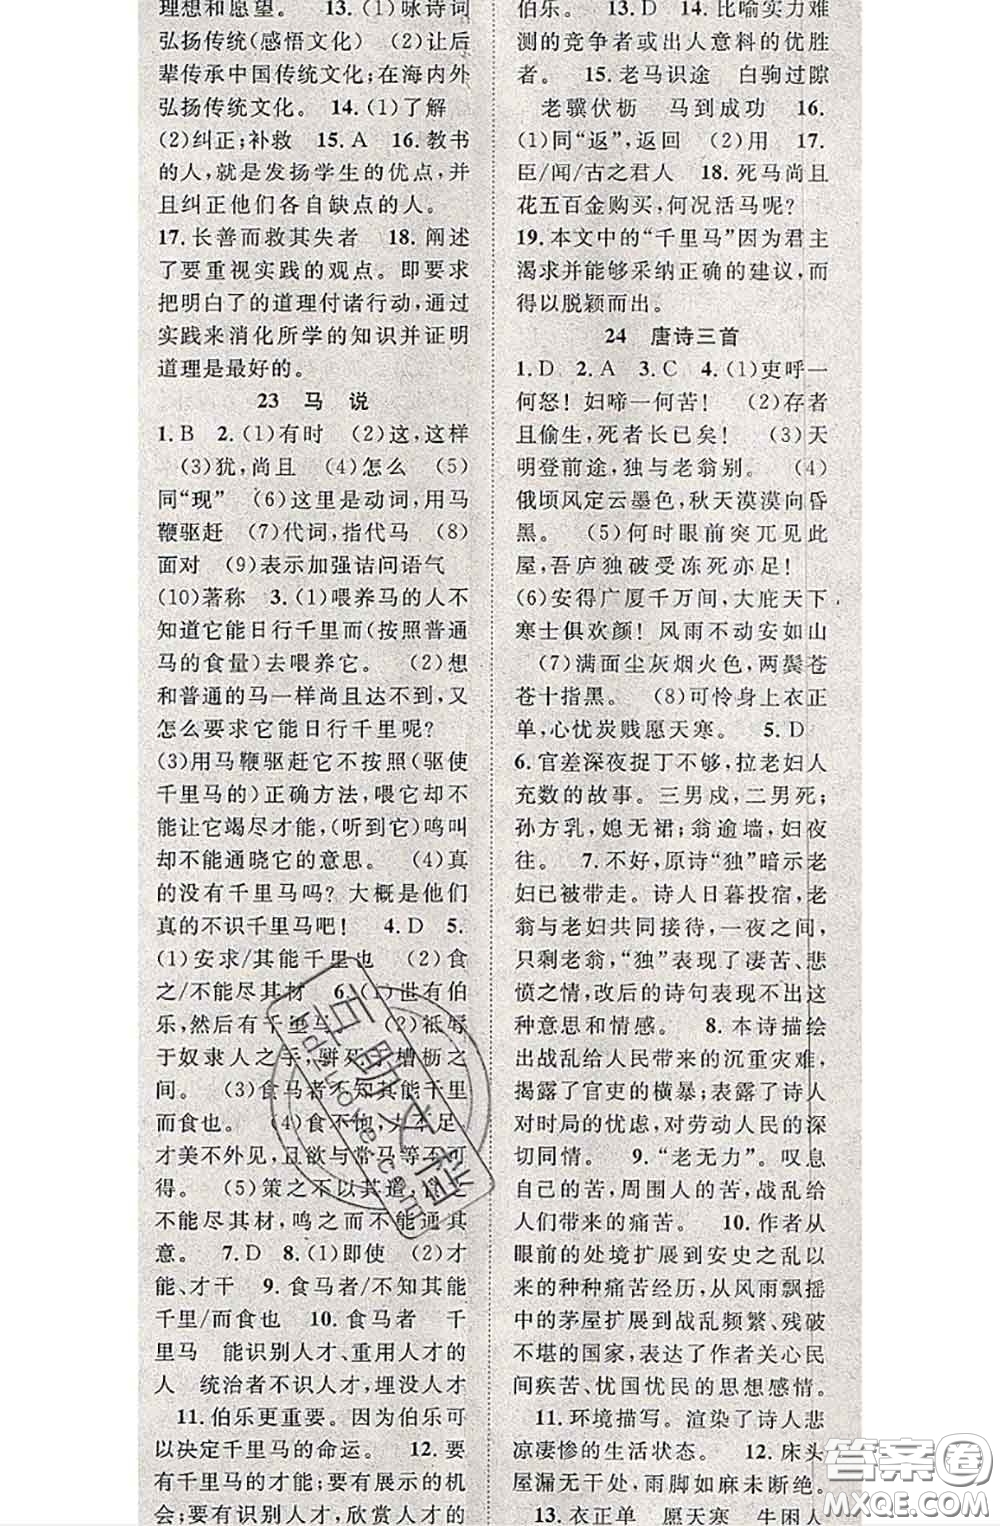 理想和愿望。　13.(1)咏诗词
弘扬传统(感悟文化)　(2)让后
辈传承中国传统文化;在海内外
弘扬传统文化。　14.(1)了解
(2)纠正;补救　15.A　16.教书
的人,就是发扬学生的优点,并
且纠正他们各自缺点的人。
17.长善而救其失者　18.阐述
了要重视实践的观点。即要求
把明白了的道理付诸行动,通过
实践来消化所学的知识并证明
道理是最好的。
23　马　说
1.B　2.(1)有时　(2)这,这样
(3)犹,尚且　(4)怎么　(5)
同“现”　(6)这里是动词,用马
鞭驱赶　(7)代词,指代马　(8)
面对　(9)表示加强诘问语气
(10)著称　3.(1)喂养马的人不
知道它能日行千里而(按照普通
马的食量)去喂养它。　(2)想
和普通的马一样尚且达不到,又
怎么要求它能日行千里呢?
(3)用马鞭驱赶它不按照(驱使
千里马的)正确方法,喂它却不
能让它竭尽才能,(听到它)鸣叫
却不能通晓它的意思。　(4)真
的没有千里马吗? 大概是他们
真的不识千里马吧!　4.D　5.
(1)安求/其能千里也　(2)食
之/不能尽其材　6.(1)世有伯
乐,然后有千里马。　(2)祗辱
于奴隶人之手,骈死于槽枥之
间。　(3)食马者不知其能千里
而食也。　(4)食不饱,力不足,
才美不外见,且欲与常马等不可
得。　(5)策之不以其道,食之
不能尽其材,鸣之而不能通其
意。　7.D　8.(1)即使　(2)才
能、才干　9.食马者/不知其能
千里/而食也　10.食马者　千
里马　能识别人才、重用人才的
人　统治者不识人才,埋没人才
11.伯乐更重要。因为伯乐可
以决定千里马的命运。　12.要
有千里马的才能;要有展示的机
会;要有识别人才、欣赏人才的
伯乐。　13.D　14.比喻实力难
测的竞争者或出人意料的优胜
者。　15.老马识途　白驹过隙
老骥伏枥　马到成功　16.
(1)同“返”,返回　(2)用　17.
臣/闻/古之君人　18.死马尚且
花五百金购买,何况活马呢?
19.本文中的“千里马”因为君主
渴求并能够采纳正确的建议,而
得以脱颖而出。
24　唐诗三首
1.D　2.A　3.C　4.(1)吏呼一
何怒! 妇啼一何苦!　(2)存者
且偷生,死者长已矣!　(3)天
明登前途,独与老翁别。　(4)
俄顷风定云墨色,秋天漠漠向昏
黑。　(5)何时眼前突兀见此
屋,吾庐独破受冻死亦足!
(6)安得广厦千万间,大庇天下
寒士俱欢颜! 风雨不动安如山
(7)满面尘灰烟火色,两鬓苍
苍十指黑。　(8)可怜身上衣正
单,心忧炭贱愿天寒。　5.D
6.官差深夜捉丁不够,拉老妇人
充数的故事。三男戍,二男死;
孙方乳,媳无裙;翁逾墙,妇夜
往。　7.不好,原诗“独”暗示老
妇已被带走。诗人日暮投宿,老
翁与老妇共同接待,一夜之间,
只剩老翁,“独”表现了凄苦、悲
愤之情,改后的诗句表现不出这
种意思和情感。　8.本诗描绘
出战乱给人民带来的沉重灾难,
揭露了官吏的横暴;表露了诗人
对时局的忧虑,对劳动人民的深
切同情。　9.“老无力”。叹息
自己的苦,周围人的苦,战乱给
人们带来的痛苦。　10.作者从
眼前的处境扩展到安史之乱以
来的种种痛苦经历,从风雨飘摇
中的茅屋扩展到战乱频繁、残破
不堪的国家,表达了作者关心民
间疾苦、忧国忧民的思想感情。
11.环境描写。渲染了诗人悲
凉凄惨的生活状态。　12.床头
屋漏无干处,雨脚如麻未断绝。
13.衣正单　愿天寒　牛困人
答案圈
MXQE.COM